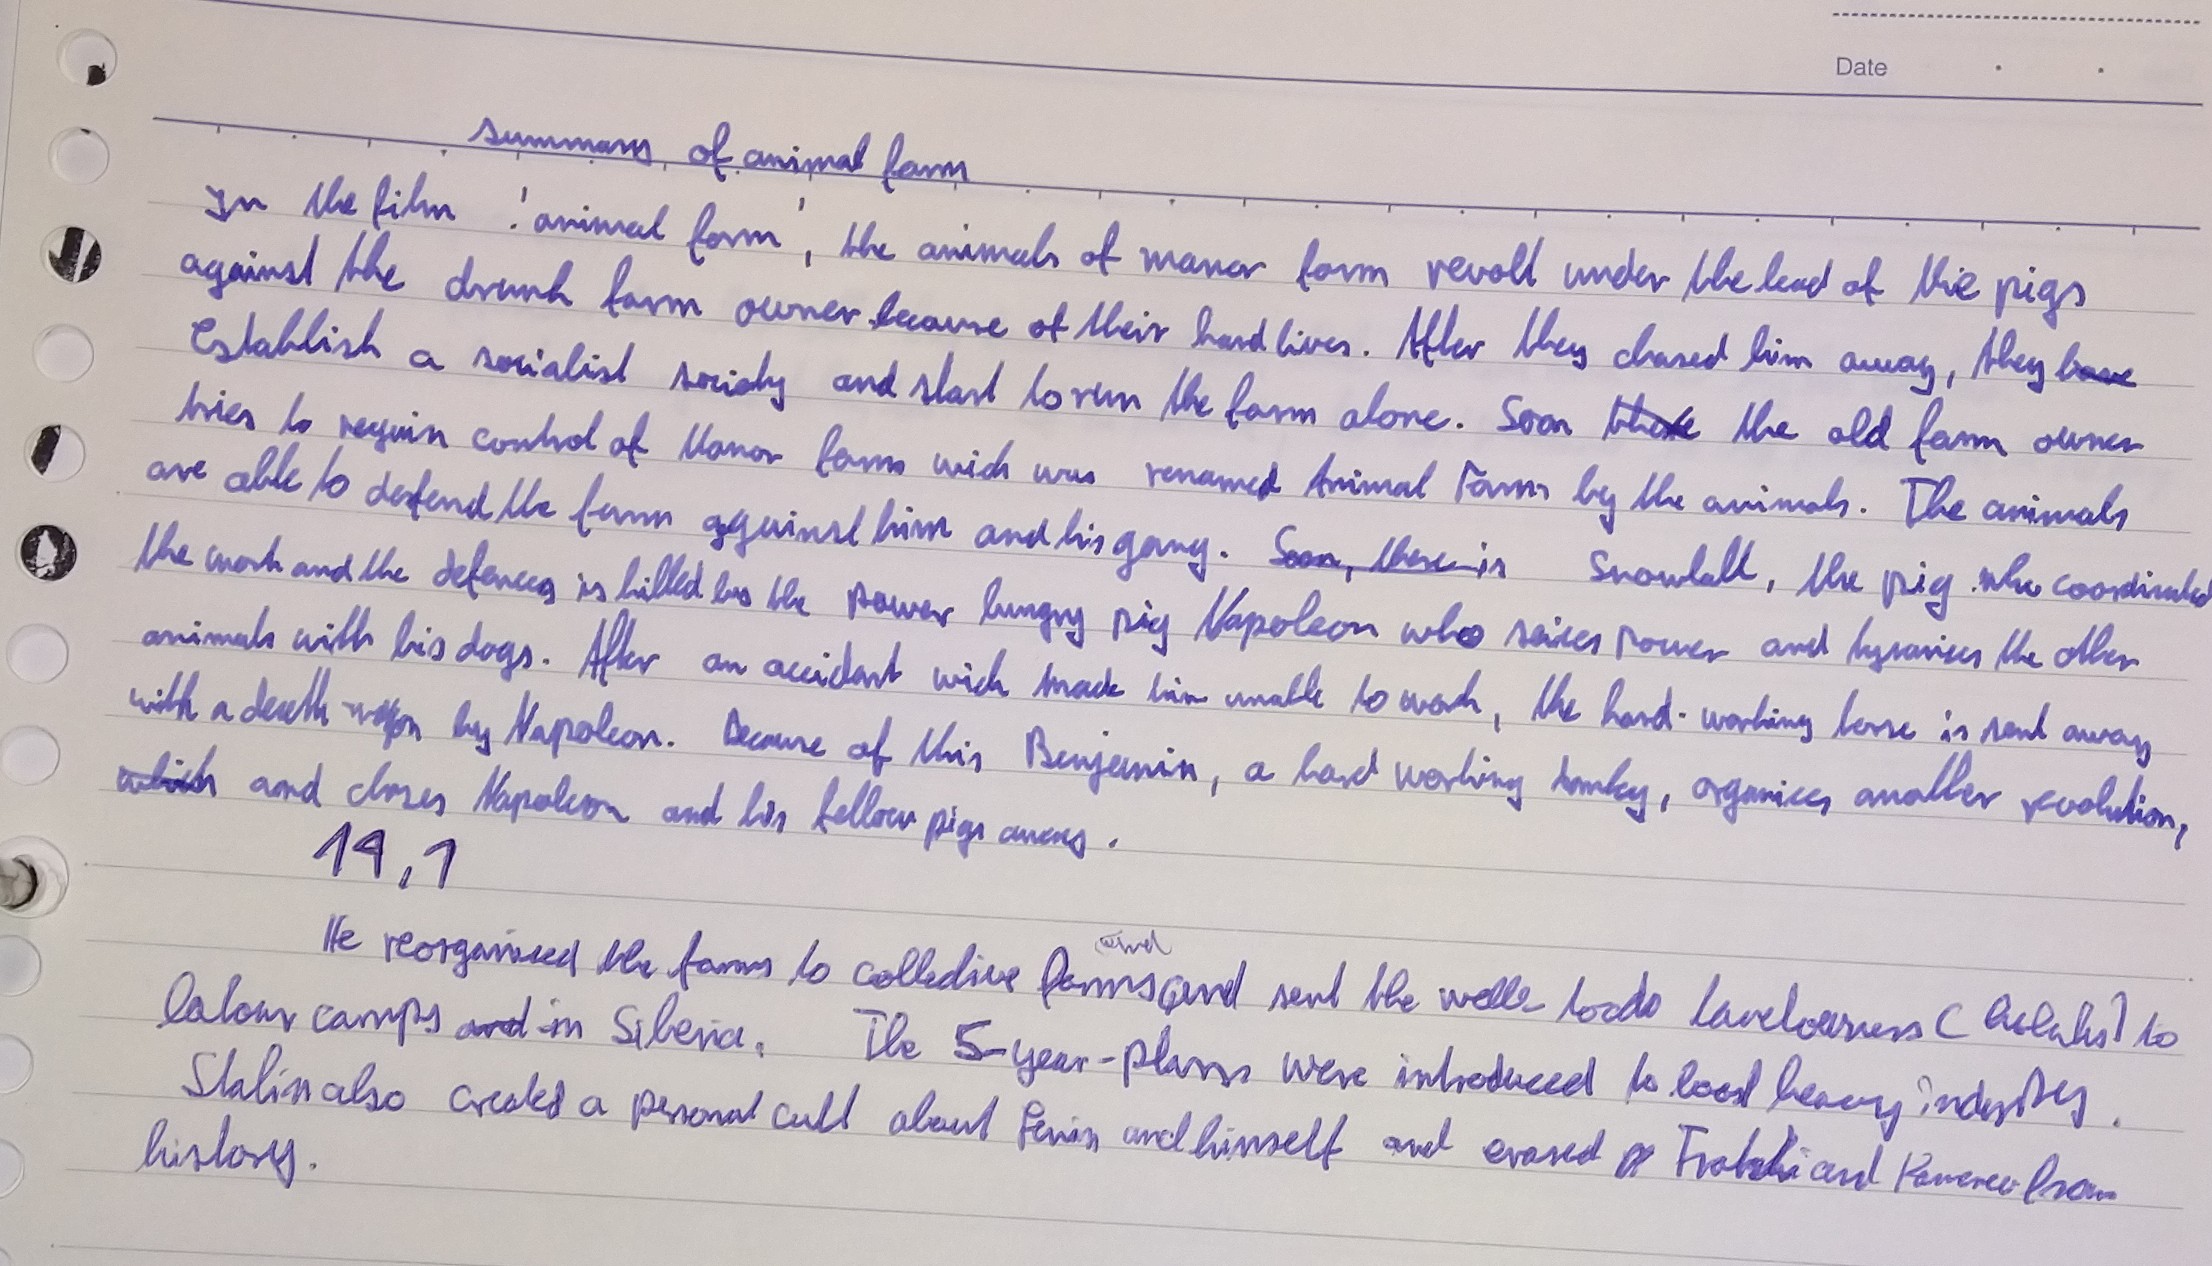 Date
summary of animal farm
In the film 'animal farm', the animals of manor farm revolt under the lead of the pigs
against the drunk farm owner because of their hard lives. After they chased him away, they have
establish a socialist society and start to run the farm alone. Soon the old farm owner
tries to reguin control of Manor farm wich was renamed Animal Farm by the animals. The animals
are able to defend the farm against him and his gang. Soon, there is Snowball, the pig who coordinated
the work and the defences is killed by the power hungry pig Napoleon who seizes power and tyranises the other
animals with his dogs. After an accident wich made him unable to work, the hard-working horse is sent away
with a death by Napoleon. Because of this Benjamin, a hard working donkey, organices another revolution,
which and chases Napoleon and his fellow pigs away.
19,1
He reorganised the farms to collective farms and and sent the welle to do (kulaks) to
labour camps and in Siberia. The 5-year-plans were introduced to boost heavy industry.
Stalin also created a personal cult about Lenin and himself and erased Trotzki and Kamenev from
history.